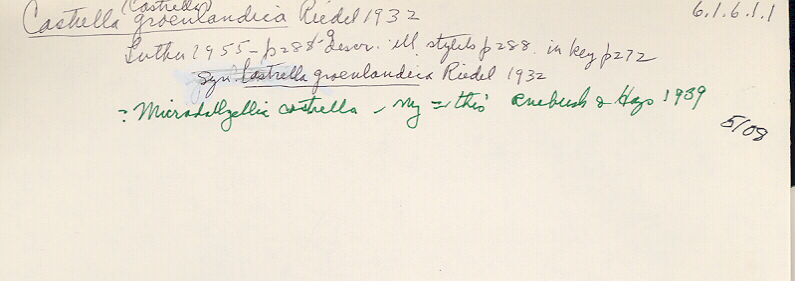 (Castrella) 6.1.6.1.1
Castrella groenlandica Riedel 1932
Luther 1955 - p288-9 descr. ill. stylets p288. in key p272
Syn. Castrella groenlandica Riedel 1932
? Microdalyellia castrella - my = this Ruebush & Hays 1939
5/08